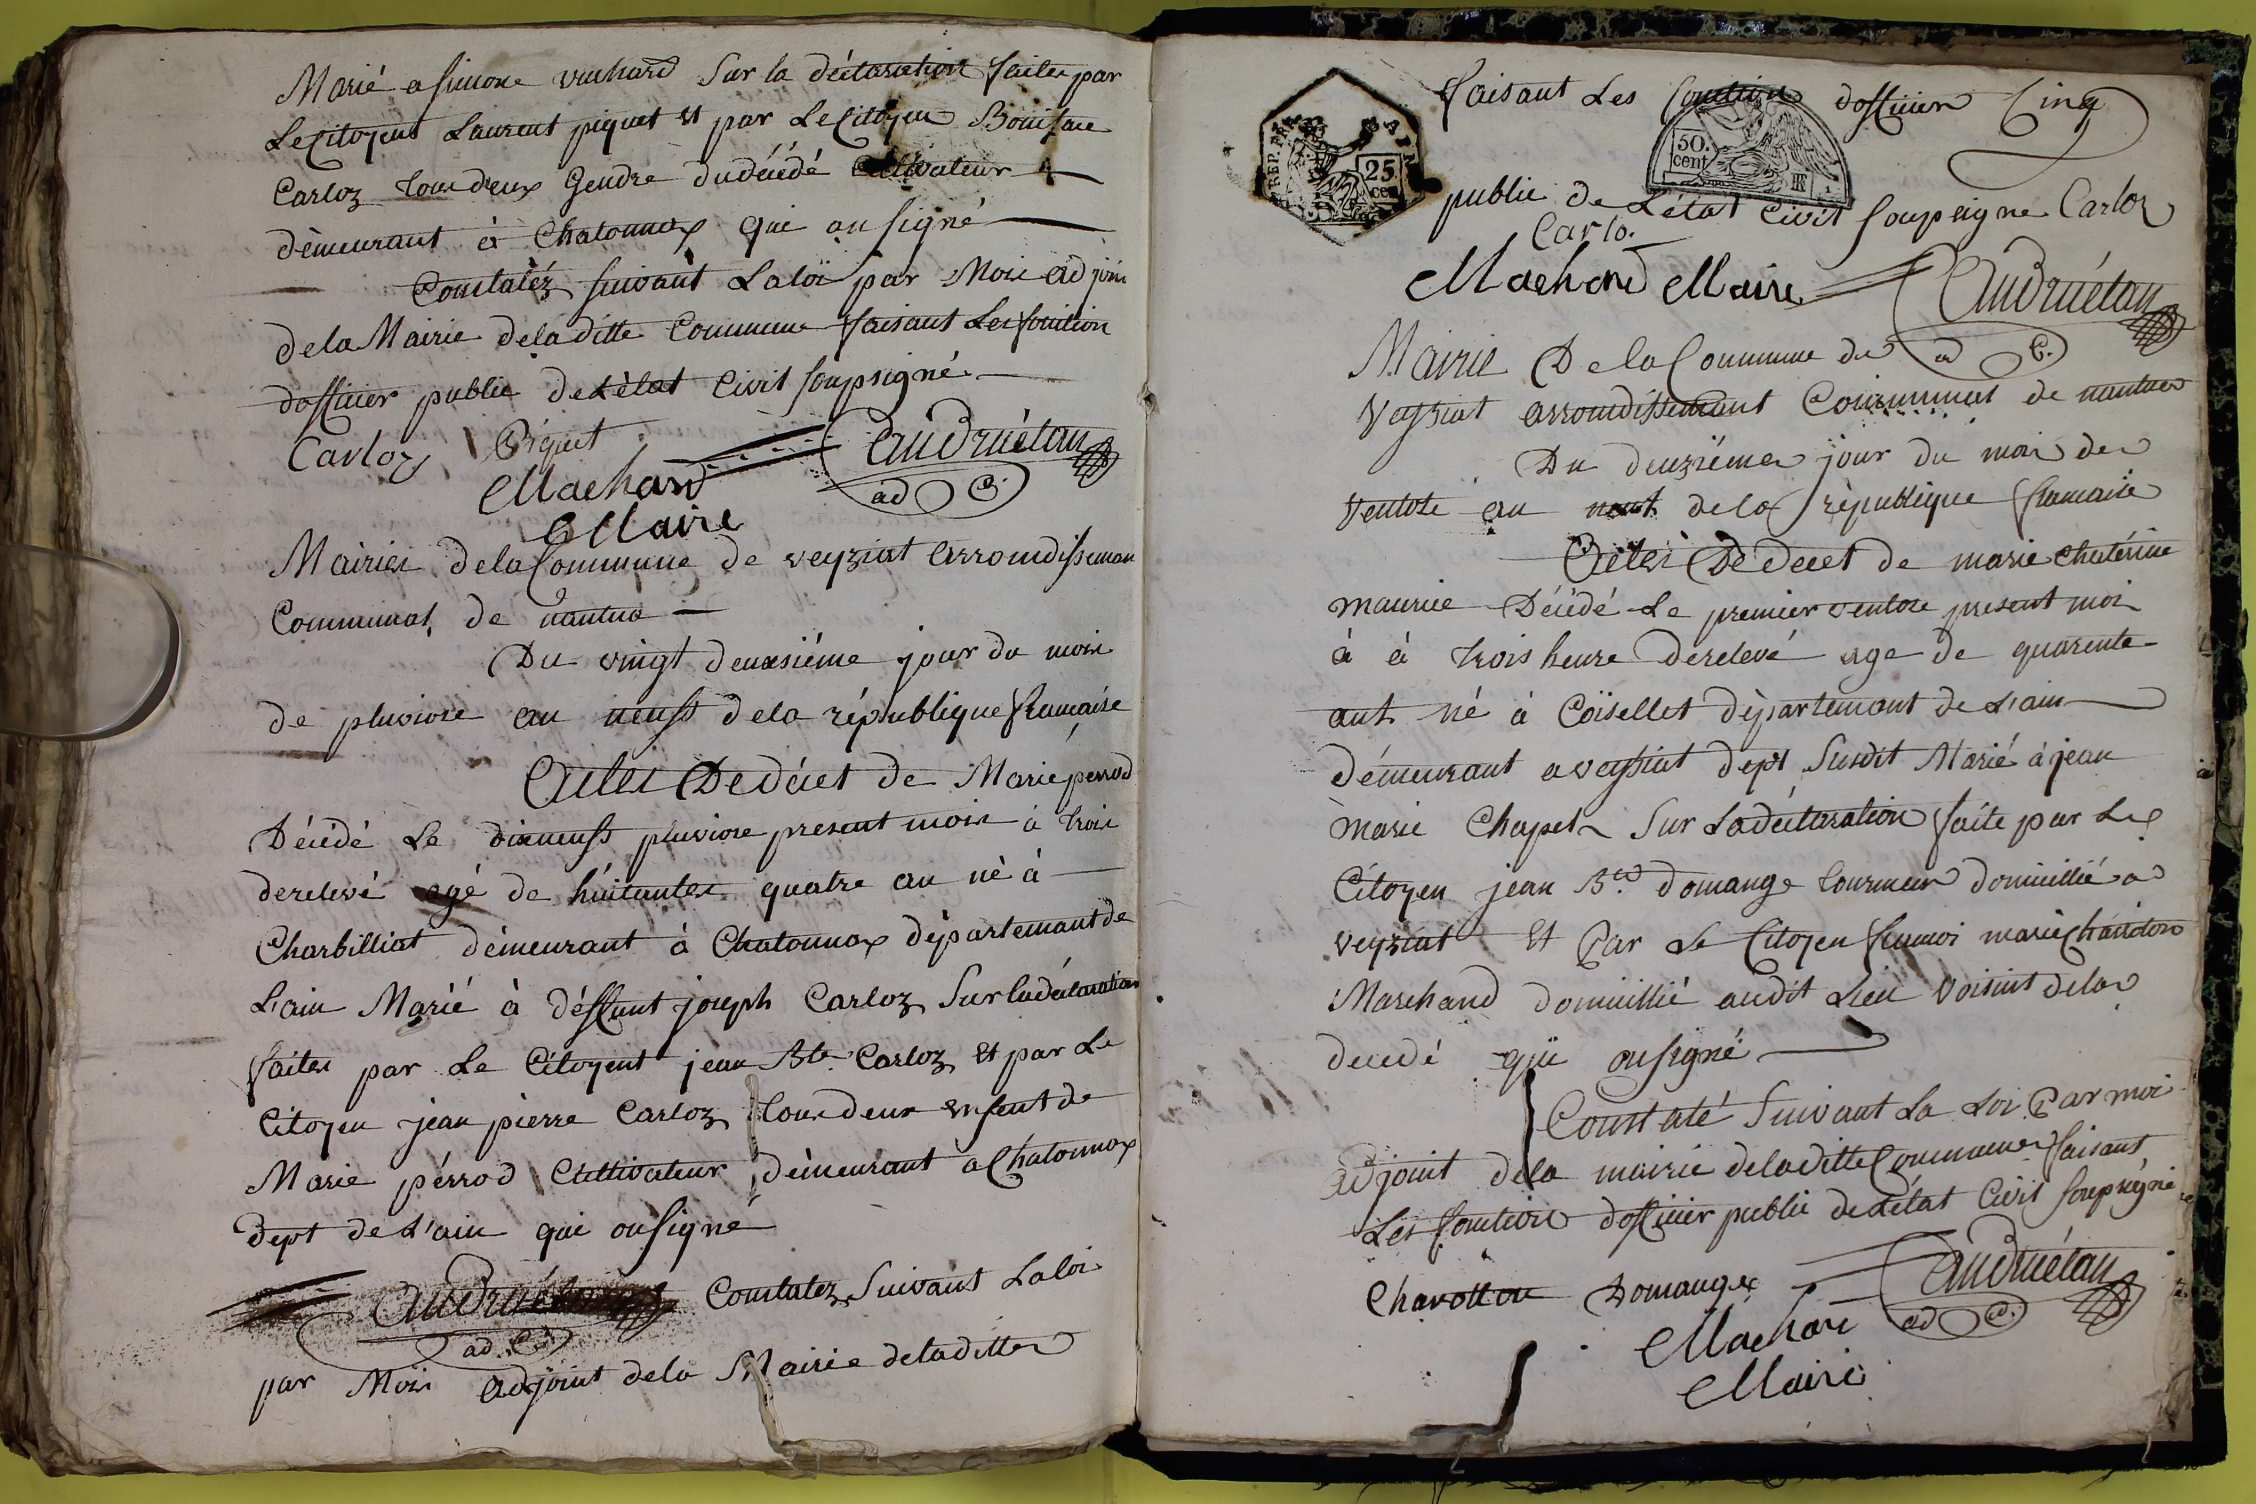 Marié a simone vuchard Sur la déclaration faites par
Le Citoyent Laurent piquet et par Le Citoyen Boniface
Carloz tous deux Gendre dudécédé Cultivateur
dèmeurant à Chatonnax qui on signé
Constatéz suivant La loi par Moi adjoin
de la Mairie deladitte Commune faisant Les fontion
dofficier public de L'état Civil soupsigné
Carloz Piquet
Andruétan
Machard
ad C.
Maire
Mairies dela Commune de veyziat arrondisseman
Communal de nantua
Du vingt deuxsième jour du mois
de pluviose an neuff dela république francaise
Actes De décet de Marie perrod
Décédé Le dixneuff pluviose present mois à trois
derelevé agé de huitantes quatre an né à
Charbilliat dèmeurant à Chatonnax départemant de
L'ain Marié à déffunt joseph Carloz Sur la déclaration
faites par Le Citoyent jean Bte Carloz Et par Le
Citoyen jean pierre Carloz tous deux enfent de
Marie pérrod Cultivateur dèmeurant a Chatonnax
dept de L'ain qui onsigné
Andruétan Constatez Suivant Laloi
ad. C.
par Mois adjoint dela Mairie deladitte
faisant Les fontion dofficier Cinq
REP. FRA.
AIN
25
cen
50.
cent
public de L'état Civil soupsigne Carloz
Carlo.
Machard Maire Andruétan
Mairie De la Commune de ad C.
Veyziat arrondissemant Communal de nantua
Du deuzième jour du mois de
Ventose an neuf dela république francaise
Actes De Decet de marie chatérine
maurice Décédé Le premier ventose present moi
à à trois heure derelevé age de quarente
ant né à Coïsellet département de L'ain
démeurant a veyziat dept Susdit Marié à jean
marie Chapel Sur La déclaration faite par Le
Citoyen jean Bte domange tourneur domicillié a
veyziat Et Par Le Citoyen francoi marie Chanoton
Marchand domicillié audit Lieu Voisint dela
decedé qui onsigné
Constaté Suivant La Loi Par moi
adjoint dela mairie deladitte Commune faisant
Les fontion dofficier public de L'état Civil soupsigné
Charotton Domange Andruétan
Machard ad C.
Maire